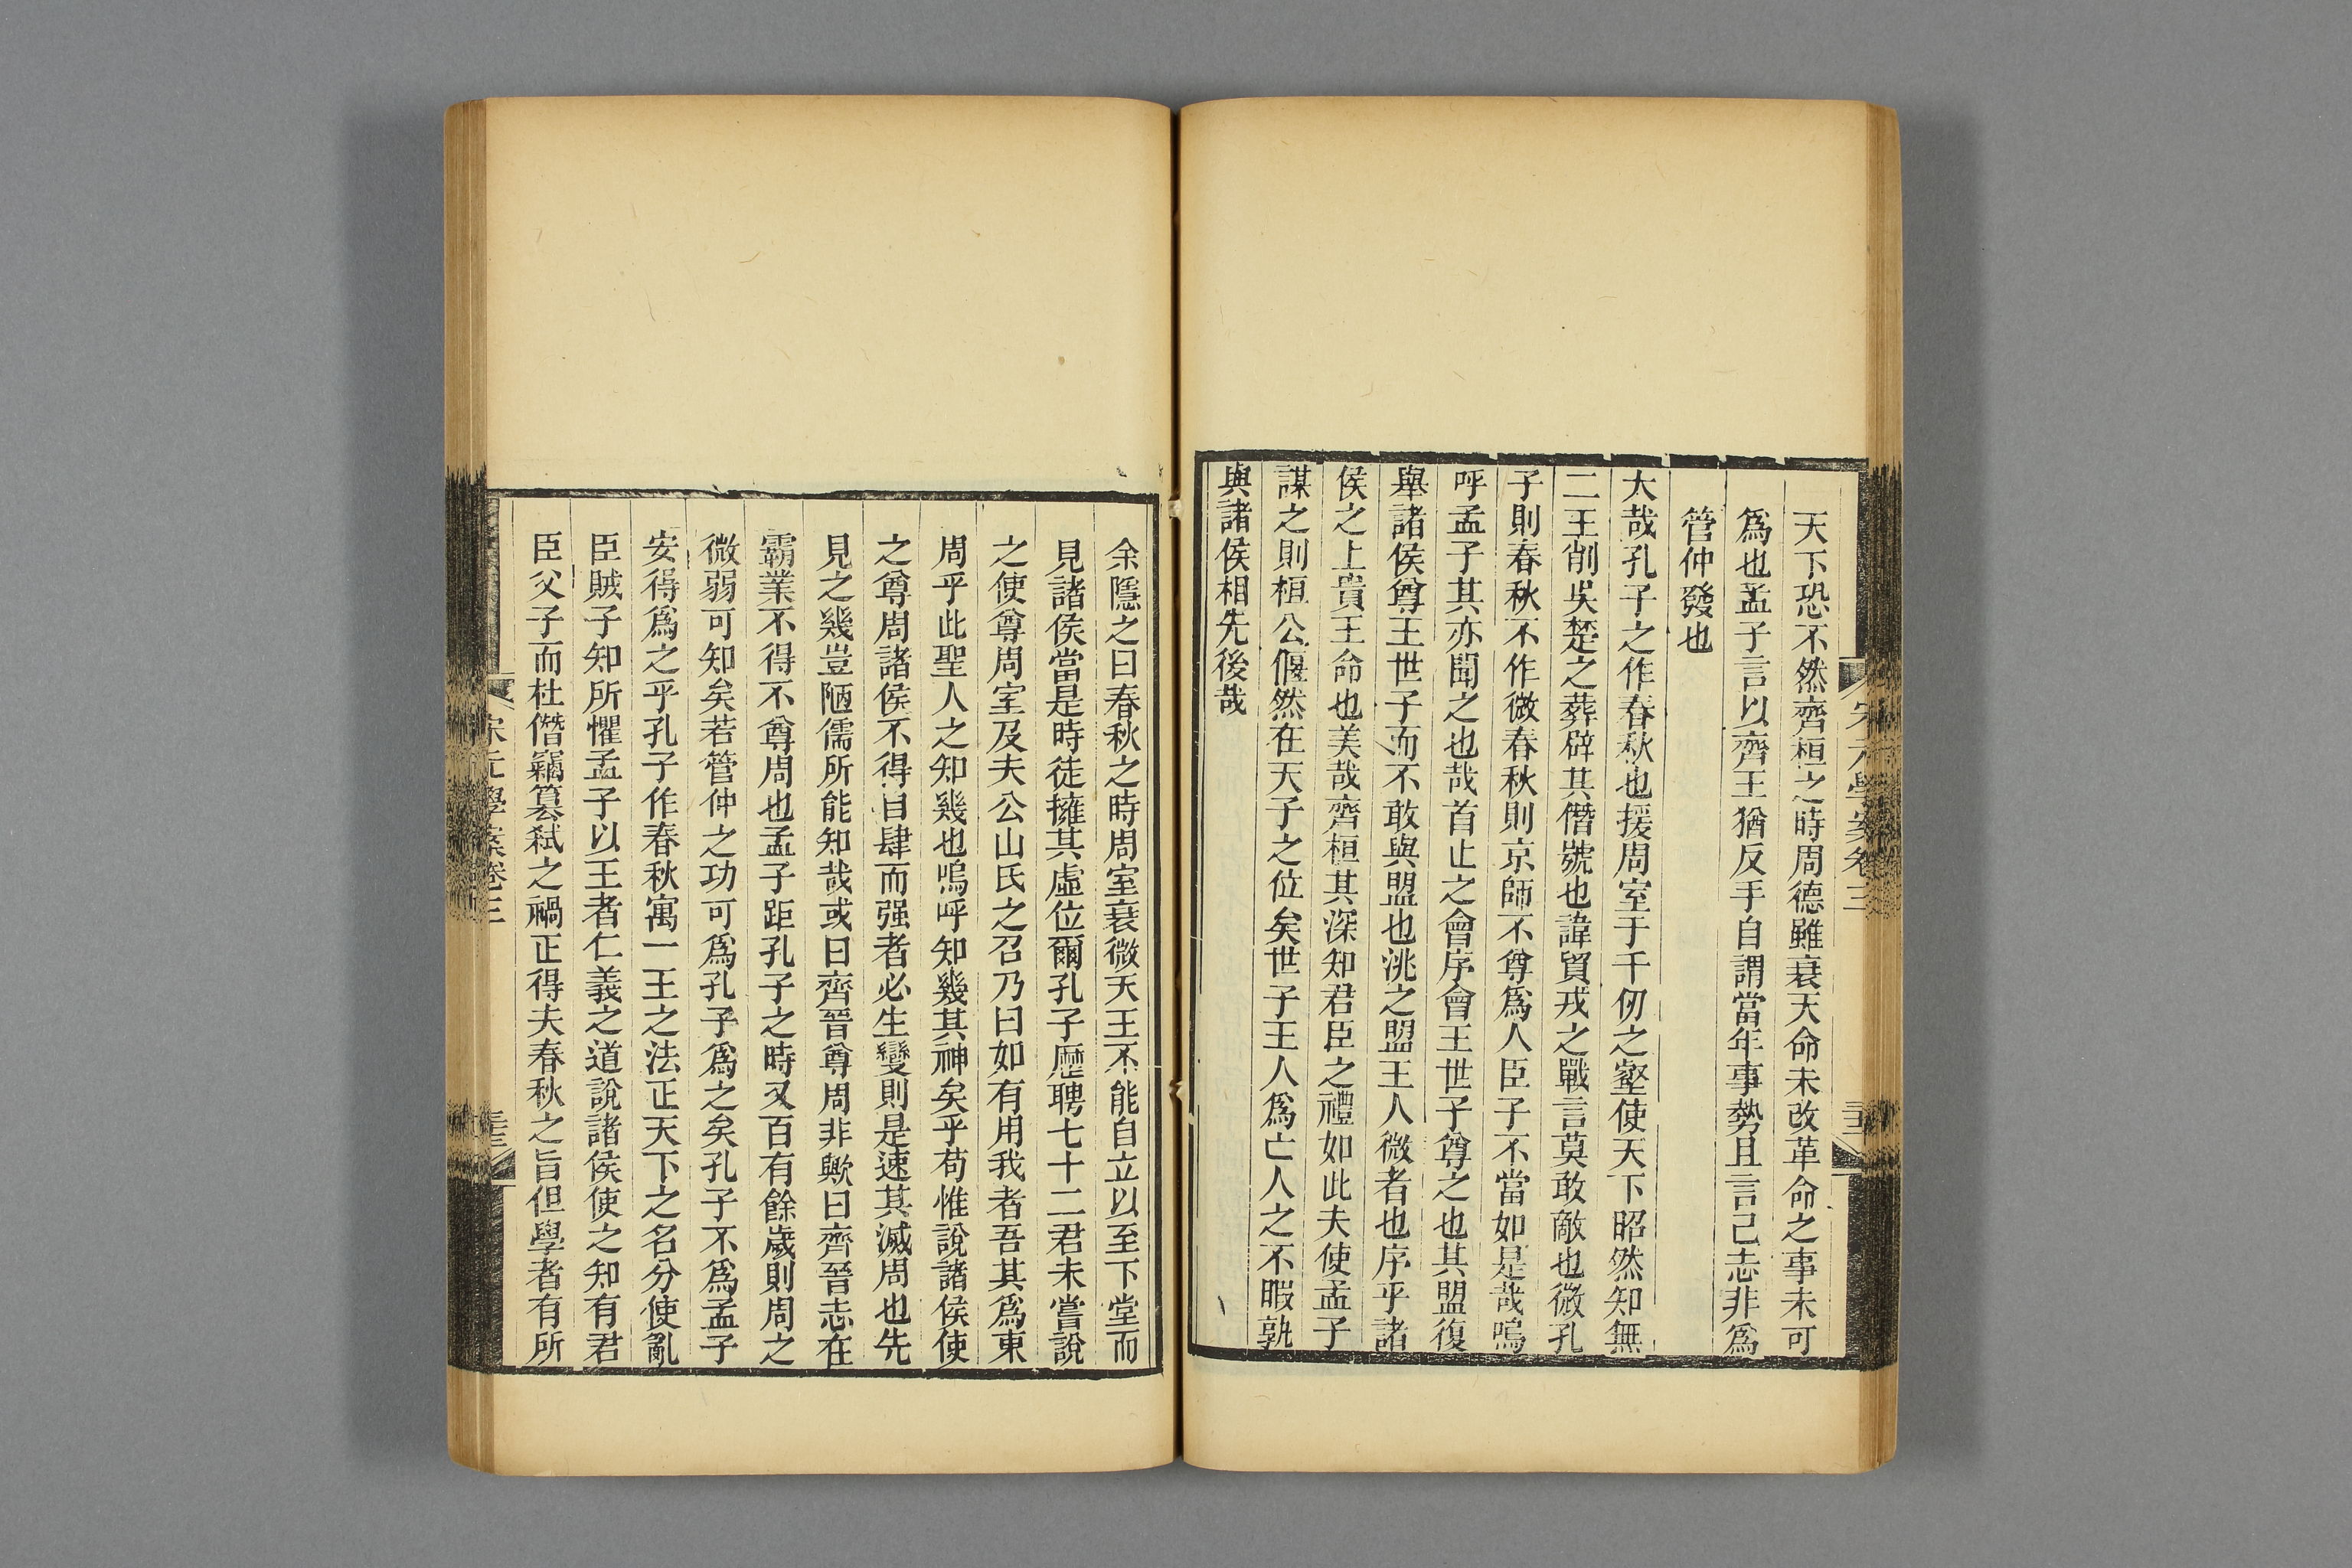 宋元學案卷三
天下恐不然齊桓之時周德雖衰天命未改革命之事未可
爲也孟子言以齊王猶反手自謂當年事勢且言己志非爲
管仲發也
大哉孔子之作春秋也援周室于千仞之壑使天下昭然知無
二王削吳楚之葬辟其僭號也諱貿戎之戰言莫敢敵也微孔
子則春秋不作微春秋則京師不尊爲人臣子不當如是哉嗚
呼孟子其亦聞之也哉首止之會序會王世子尊之也其盟復
舉諸侯尊王世子而不敢與盟也洮之盟王人微者也序乎諸
侯之上貴王命也美哉齊桓其深知君臣之禮如此夫使孟子
謀之則桓公偃然在天子之位矣世子王人爲亡人之不暇孰
與諸侯相先後哉
余隱之曰春秋之時周室衰微天王不能自立以至下堂而
見諸侯當是時徒擁其虛位爾孔子歷聘七十二君未嘗說
之使尊周室及夫公山氏之召乃曰如有用我者吾其爲東
周乎此聖人之知幾也嗚呼知幾其神矣乎苟惟說諸侯使
之尊周諸侯不得自肆而强者必生變則是速其滅周也先
見之幾豈陋儒所能知哉或曰齊晉尊周非歟曰齊晉志在
霸業不得不尊周也孟子距孔子之時又百有餘歲則周之
微弱可知矣若管仲之功可爲孔子爲之矣孔子不爲孟子
安得爲之乎孔子作春秋寓一王之法正天下之名分使亂
臣賊子知所懼孟子以王者仁義之道說諸侯使之知有君
臣父子而杜僭竊篡弑之禍正得夫春秋之旨但學者有所
宋元學案卷三